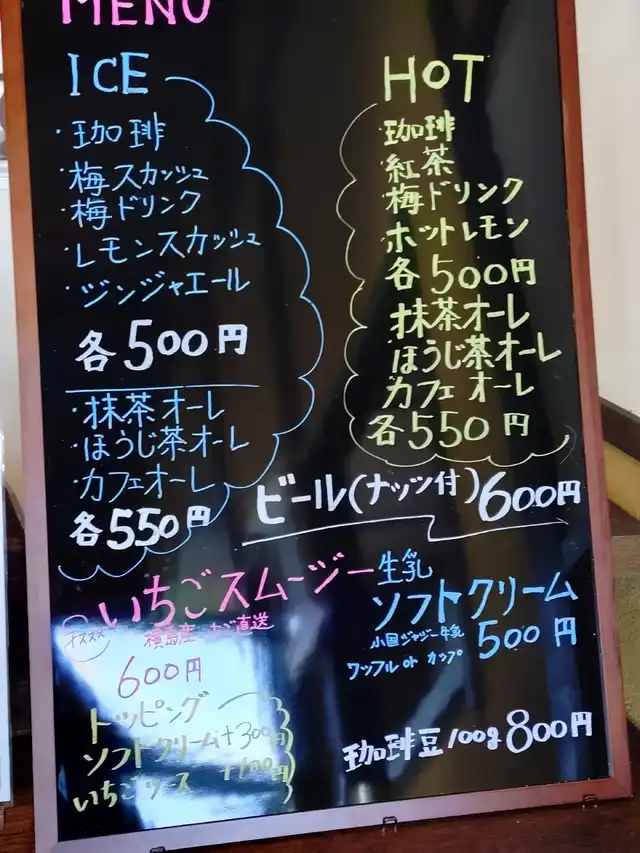 MENU
ICE
・珈琲
・梅スカッシュ
・梅ドリンク
・レモンスカッシュ
・ジンジャエール
各500円
・抹茶オーレ
・ほうじ茶オーレ
・カフェオーレ
各550円
HOT
珈琲
紅茶
梅ドリンク
ホットレモン
各500円
抹茶オーレ
ほうじ茶オーレ
カフェオーレ
各550円
ビール(ナッツ付)600円
オススメ
いちごスムージー
横島産 いちご直送
600円
トッピング
ソフトクリーム+300円
いちごソース +100円
生乳
ソフトクリーム
小国ジャージー牛乳
500円
ワッフル or カップ
珈琲豆100g 800円